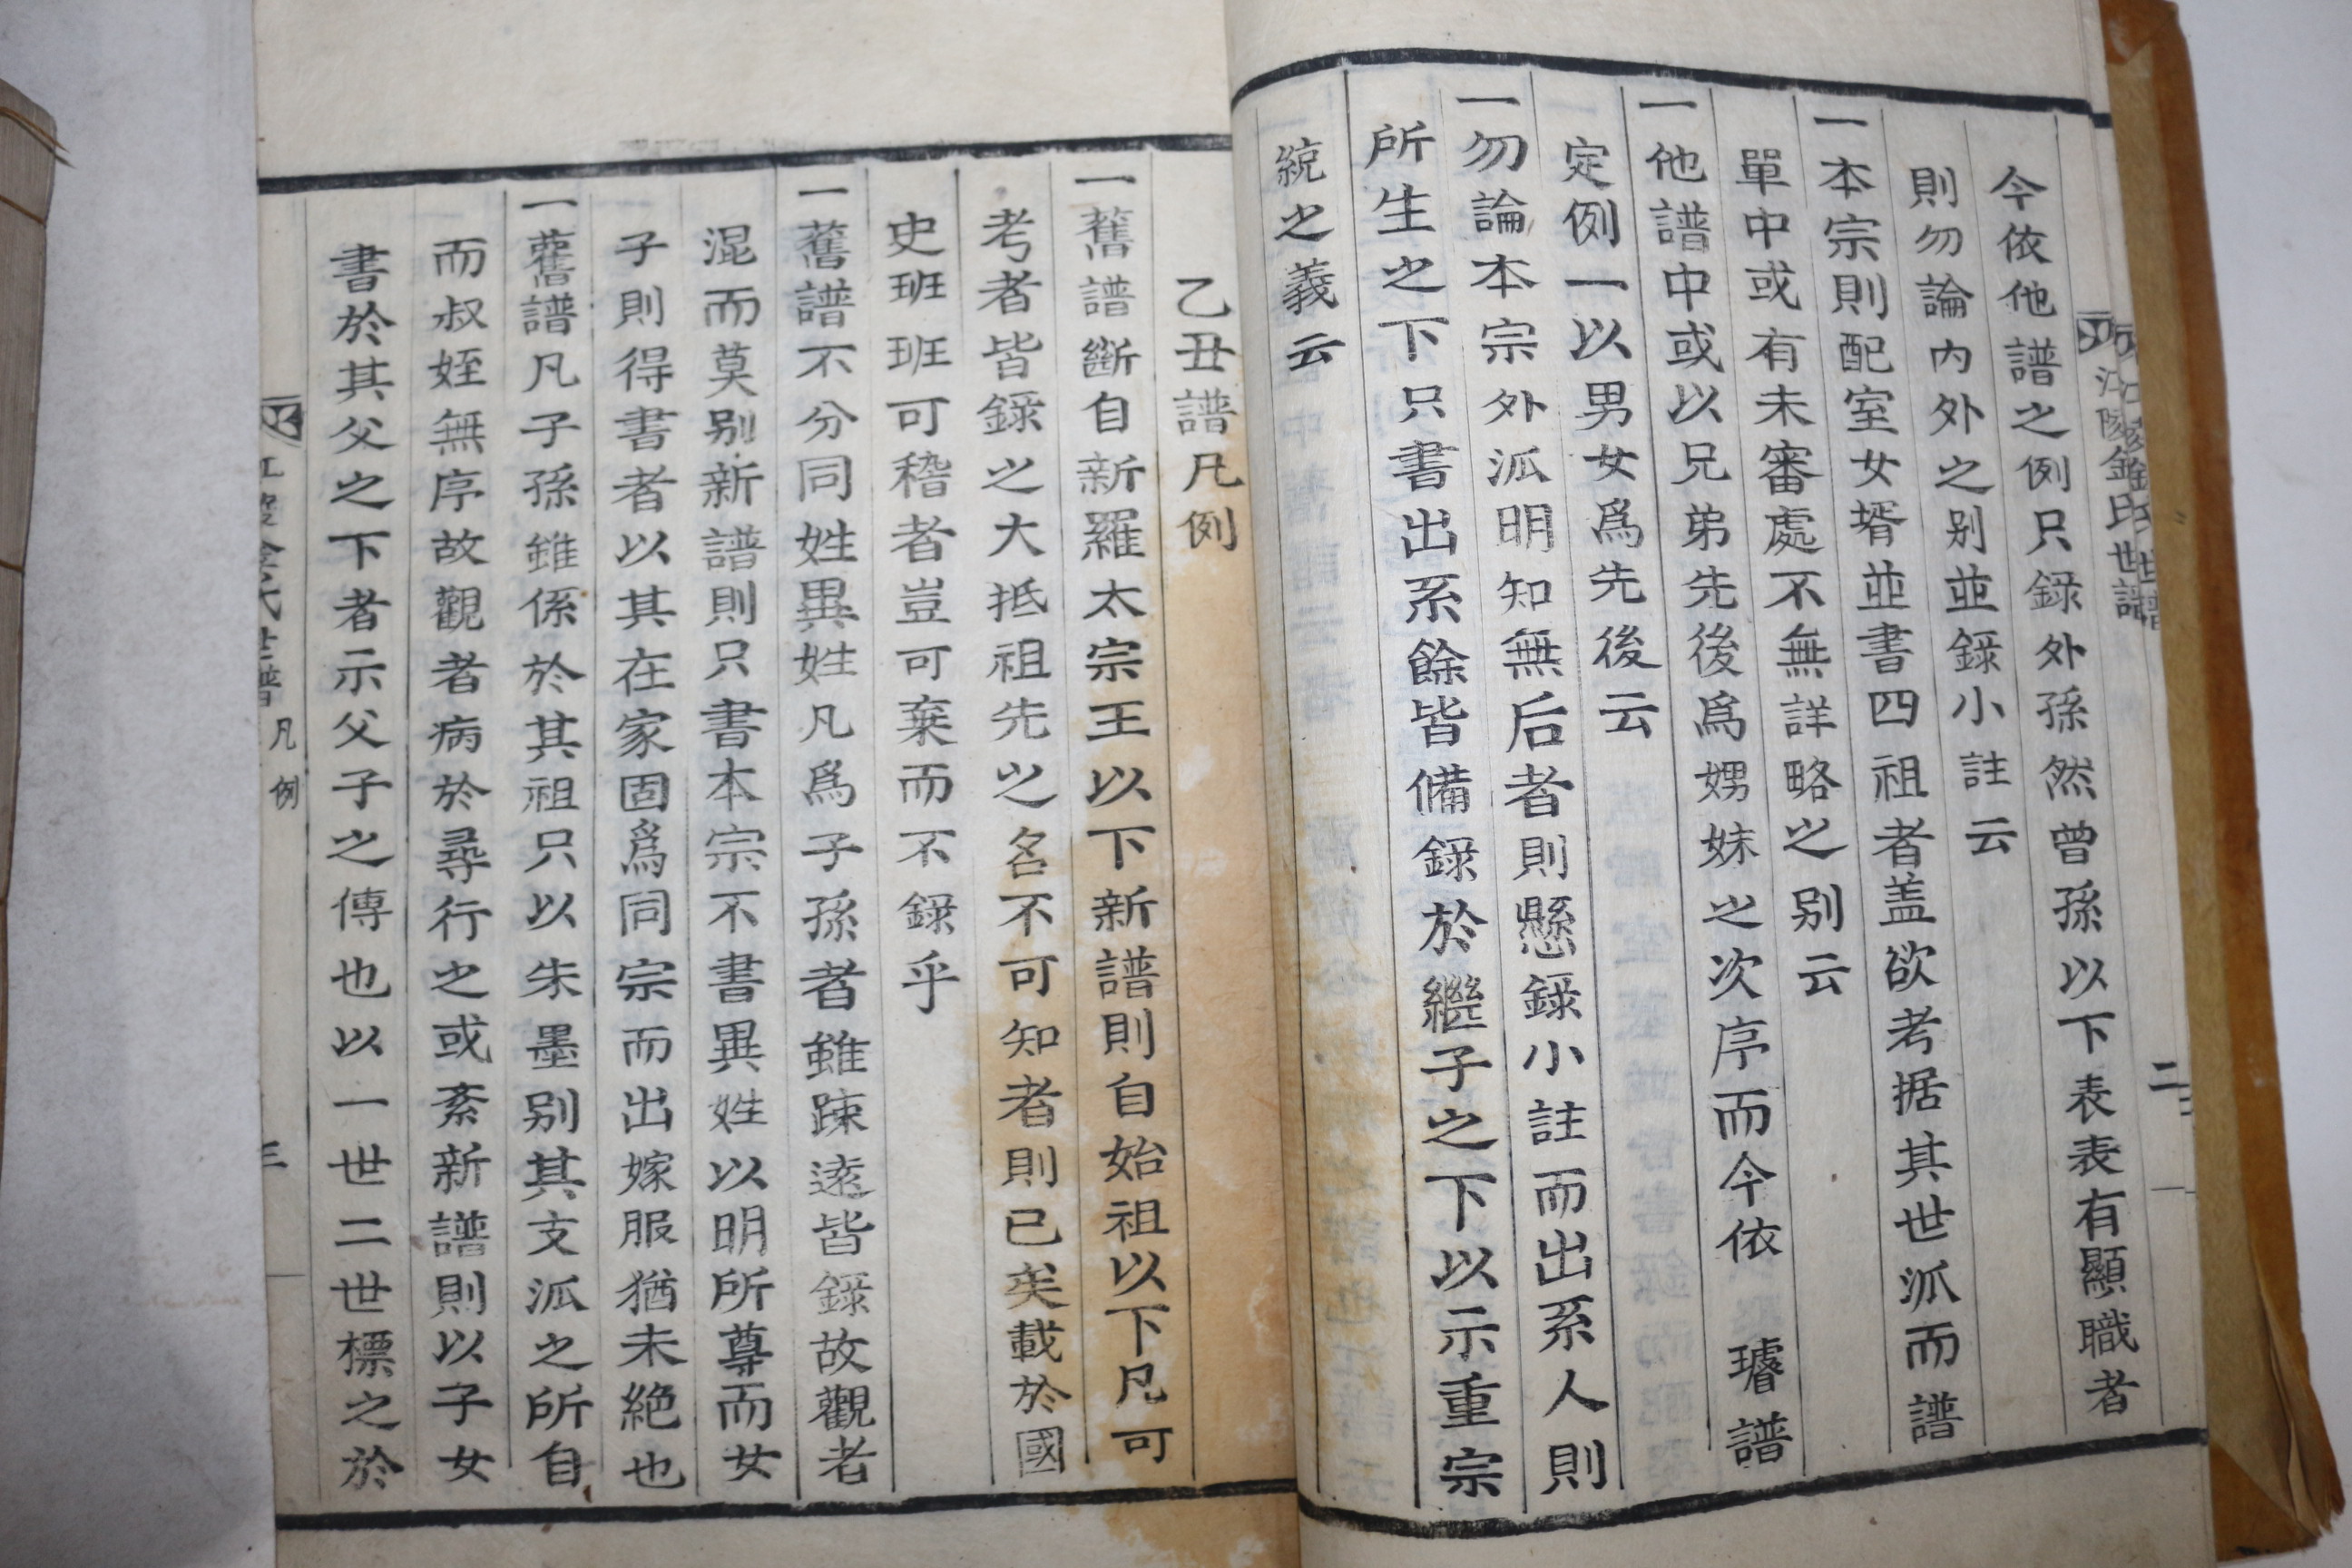 江陵金氏世譜
二
今依他譜之例只録外孫然曾孫以下表表有顯職者
則勿論内外之别並録小註云
一本宗則配室女壻並書四祖者盖欲考据其世派而譜
單中或有未審處不無詳略之别云
一他譜中或以兄弟先後爲娚妹之次序而今依 璿譜
定例一以男女爲先後云
一勿論本宗外派明知無后者則懸録小註而出系人則
所生之下只書出系餘皆備録於繼子之下以示重宗
統之義云
乙丑譜凡例
一舊譜斷自新羅太宗王以下新譜則自始祖以下凡可
考者皆録之大抵祖先之名不可知者則已矣載於國
史班班可稽者豈可棄而不録乎
一舊譜不分同姓異姓凡爲子孫者雖踈遠皆録故觀者
混而莫别新譜則只書本宗不書異姓以明所尊而女
子則得書者以其在家固爲同宗而出嫁服猶未絶也
一舊譜凡子孫雖係於其祖只以朱墨别其支派之所自
而叔姪無序故觀者病於尋行之或紊新譜則以子女
書於其父之下者示父子之傳也以一世二世標之於
江陵金氏世譜 凡例
三